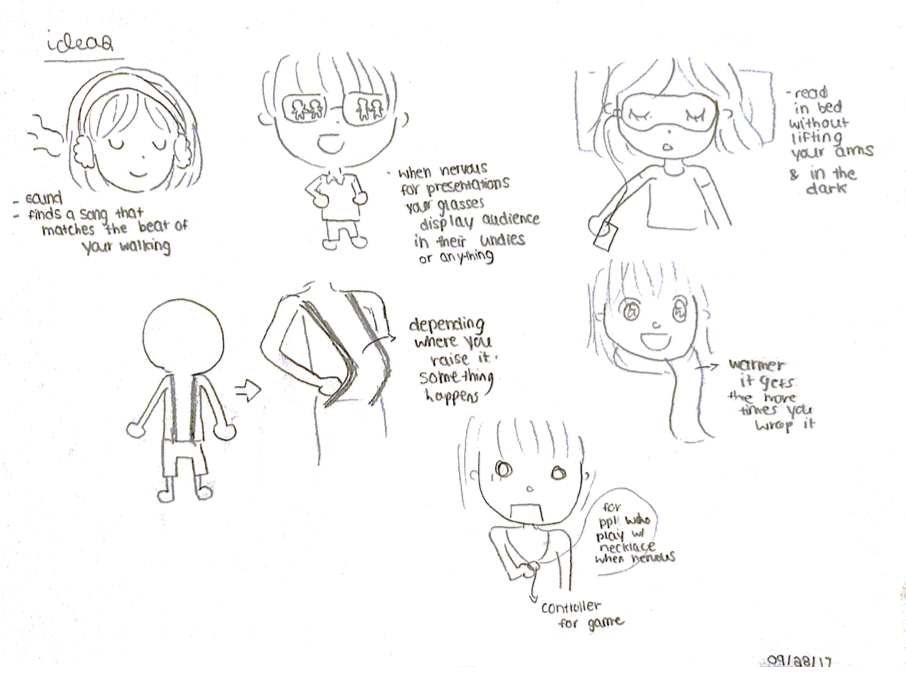 ideas
- sound
- finds a song that
matches the beat of
your walking
- when nervous
for presentations
your glasses
display audience
in their undies
or anything
- read
in bed
without
lifting
your arms
& in the
dark
depending
where you
raise it,
something
happens
warmer
it gets
the more
times you
wrap it
for
ppl who
play w/
necklace
when nervous
controller
for game
09/28/17